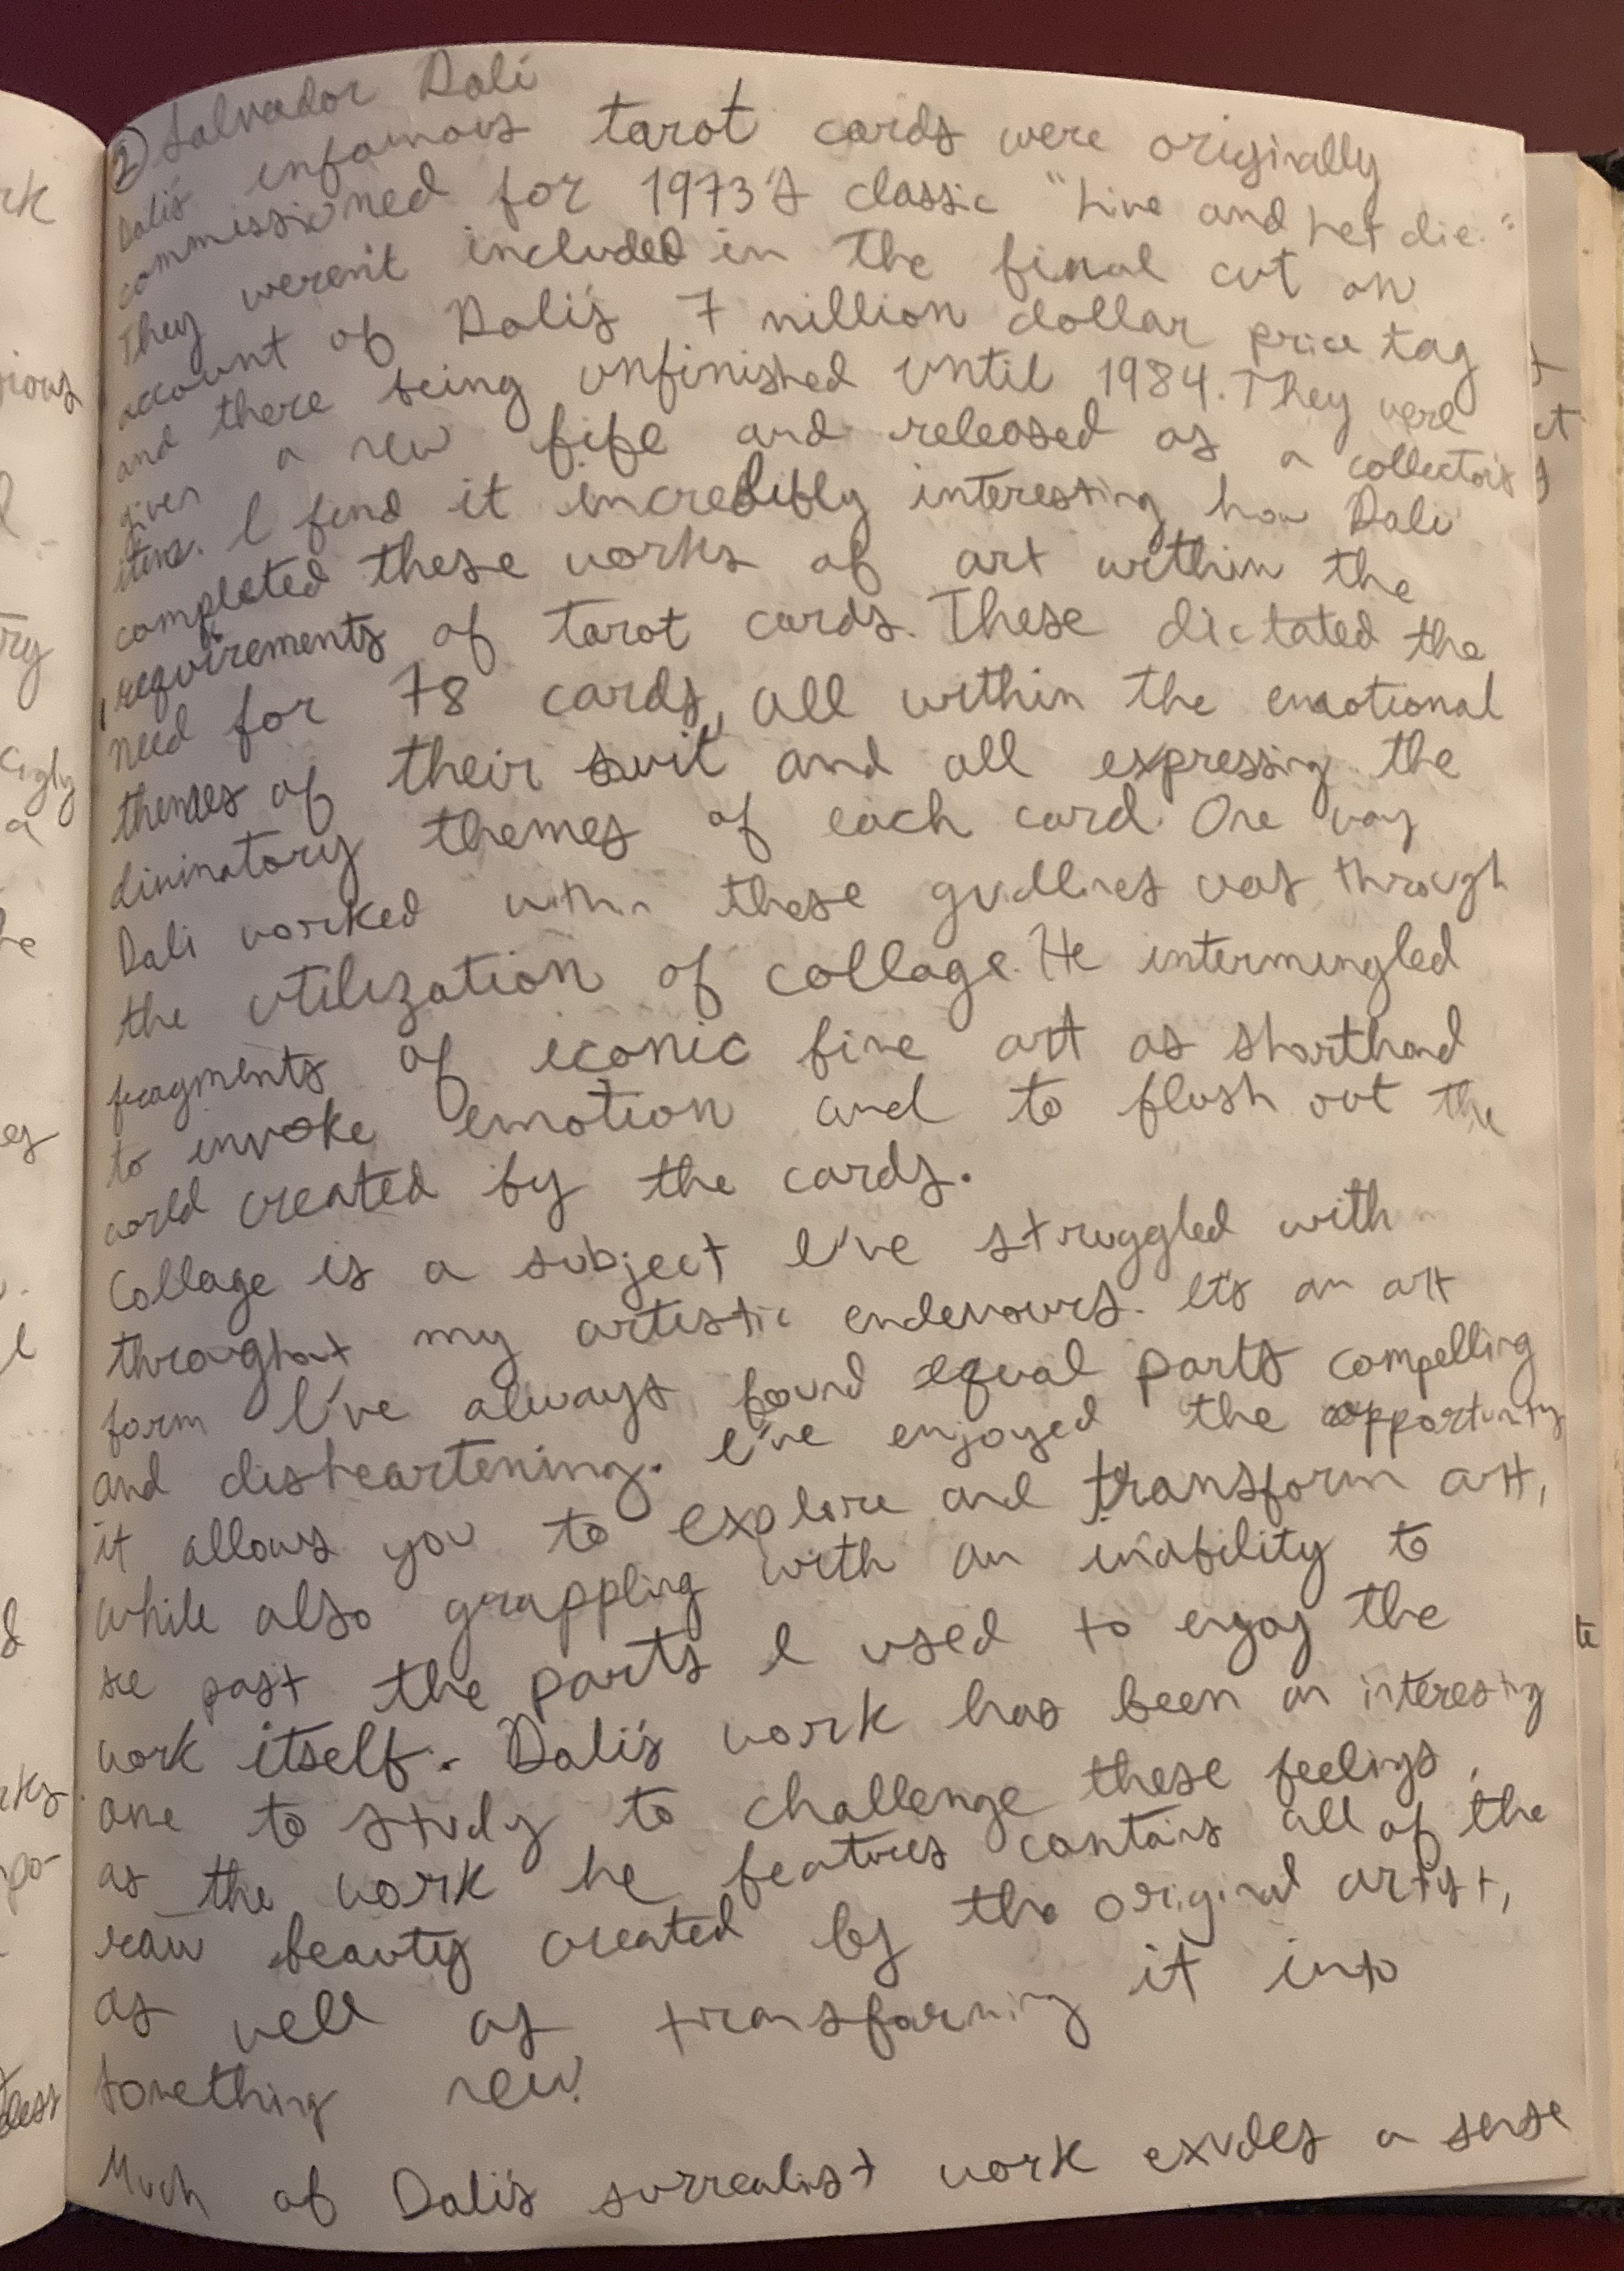 ② Salvador Dali
Dali's infamous tarot cards were originally
commissioned for 1973's classic "Live and Let die."
They weren't included in the final cut on
account of Dali's 7 million dollar price tag
and there being unfinished until 1984. They were
given a new fife and released as a collector's
item. I find it incredibly interesting how Dali
completed these works of art within the
requirements of tarot cards. These dictated the
need for 78 cards, all within the emotional
themes of their suit and all expressing the
divinatory themes of each card. One way
Dali worked within these guidlines was through
the utilization of collage. He intermingled
fragments of iconic fine art as shorthand
to invoke emotion and to flush out the
world created by the cards.
Collage is a subject I've struggled with
throughout my artistic endevours. It's an art
form I've always found equal parts compelling
and disheartening. I've enjoyed the opportunity
it allows you to explore and transform art,
while also grappling with an inability to
see past the parts I used to enjoy the
work itself. Dali's work has been an interesting
one to study to challenge these feelings,
as the work he features contains all of the
raw beauty created by the original artist,
as well as transforming it into
something new.
Much of Dali's surrealist work exudes a sense